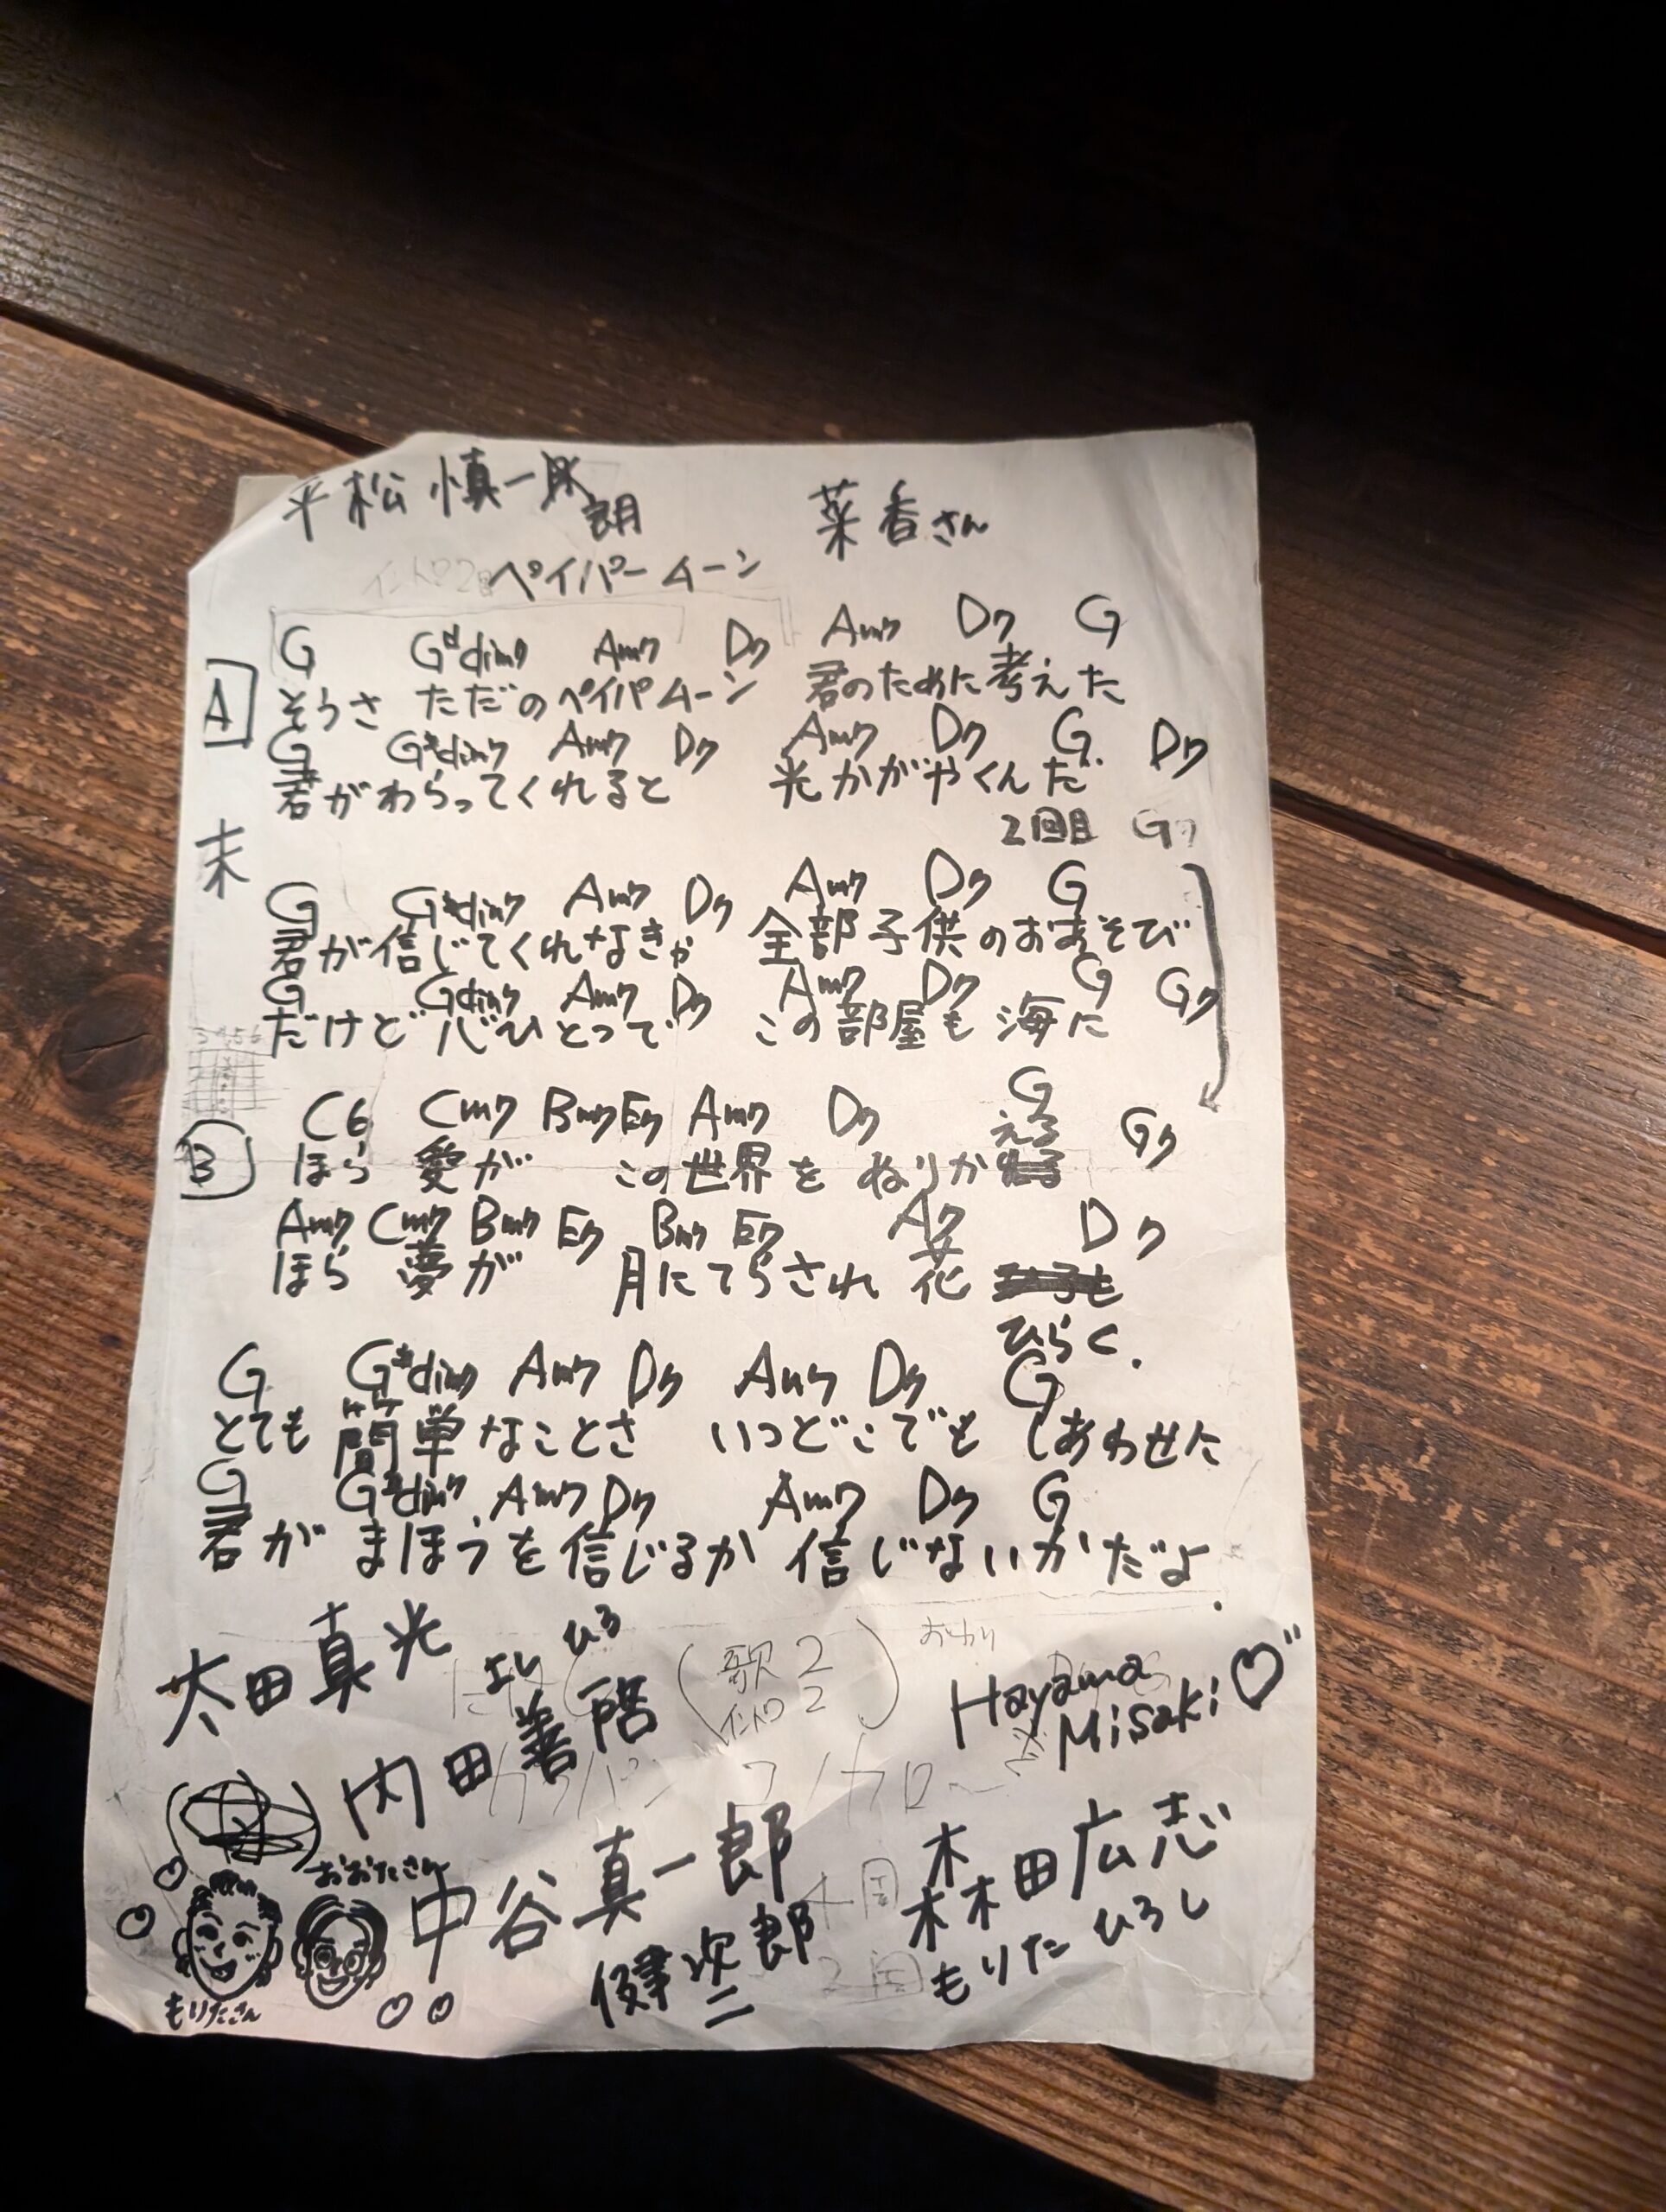 平松 慎一朗 菜香さん
イントロ2回 ペイパームーン
G G#dim7 Am7 D7 Am7 D7 G
A そうさ ただのペイパムーン 君のために考えた
G G#dim7 Am7 D7 Am7 D7 G D7
君がわらってくれると 光かがやくんだ
2回目 G7
末
G G#dim7 Am7 D7 Am7 D7 G
君が信じてくれなきゃ 全部子供のおあそび
G Gdim7 Am7 D7 Am7 D7 G G7
だけど心ひとつで この部屋も海に
C6 Cm7 Bm7 E7 Am7 D7 G G7
B ほら 愛が この世界を ぬりか える
Am7 Cm7 Bm7 E7 Bm7 E7 A7 D7
ほら 夢が 月にてらされ 花 も
ひらく.
G G#dim7 Am7 D7 Am7 D7 G
とても 簡単なことさ いつどこでも しあわせに
G G#dim7 Am7 D7 Am7 D7 G
君が まほうを信じるか 信じないかだよ.
太田真光 よしひろ (歌2 イントロ2) おわり
内田善啓 Hayama Misaki♡
おおたさん 中谷真一郎 森田広志
健次郎 二 2周 もりたひろし
もりたさん